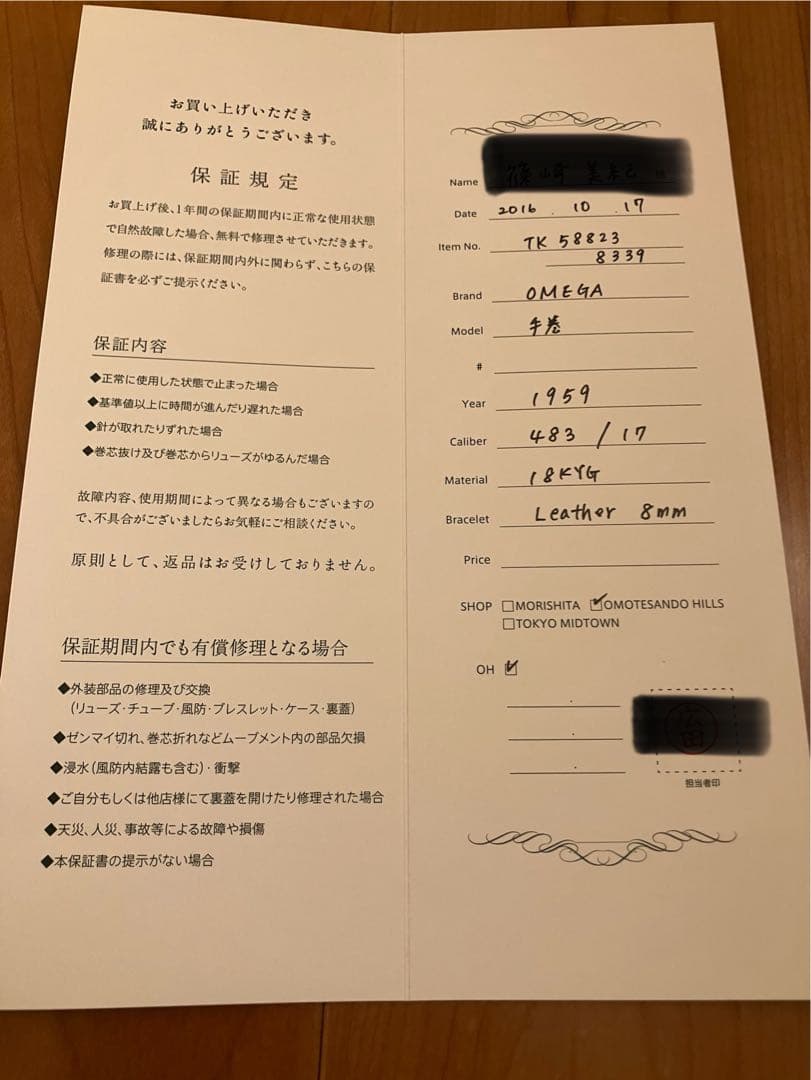 お買い上げいただき
誠にありがとうございます。
保証規定
お買上げ後、1年間の保証期間内に正常な使用状態
で自然故障した場合、無料で修理させていただきます。
修理の際には、保証期間内外に関わらず、こちらの保
証書を必ずご提示ください。
保証内容
◆正常に使用した状態で止まった場合
◆基準値以上に時間が進んだり遅れた場合
◆針が取れたりずれた場合
◆巻芯抜け及び巻芯からリューズがゆるんだ場合
故障内容、使用期間によって異なる場合もございますの
で、不具合がございましたらお気軽にご相談ください。
原則として、返品はお受けしておりません。
保証期間内でも有償修理となる場合
◆外装部品の修理及び交換
(リューズ・チューブ・風防・ブレスレット・ケース・裏蓋)
◆ゼンマイ切れ、巻芯折れなどムーブメント内の部品欠損
◆浸水(風防内結露も含む)・衝撃
◆ご自分もしくは他店様にて裏蓋を開けたり修理された場合
◆天災、人災、事故等による故障や損傷
◆本保証書の提示がない場合
Name
Date 2016.10.17
Item No. TK 58823
8339
Brand OMEGA
Model 手巻
#
Year 1959
Caliber 483 / 17
Material 18KYG
Bracelet Leather 8mm
Price
SHOP □MORISHITA ☑OMOTESANDO HILLS
□TOKYO MIDTOWN
OH ☑
担当者印